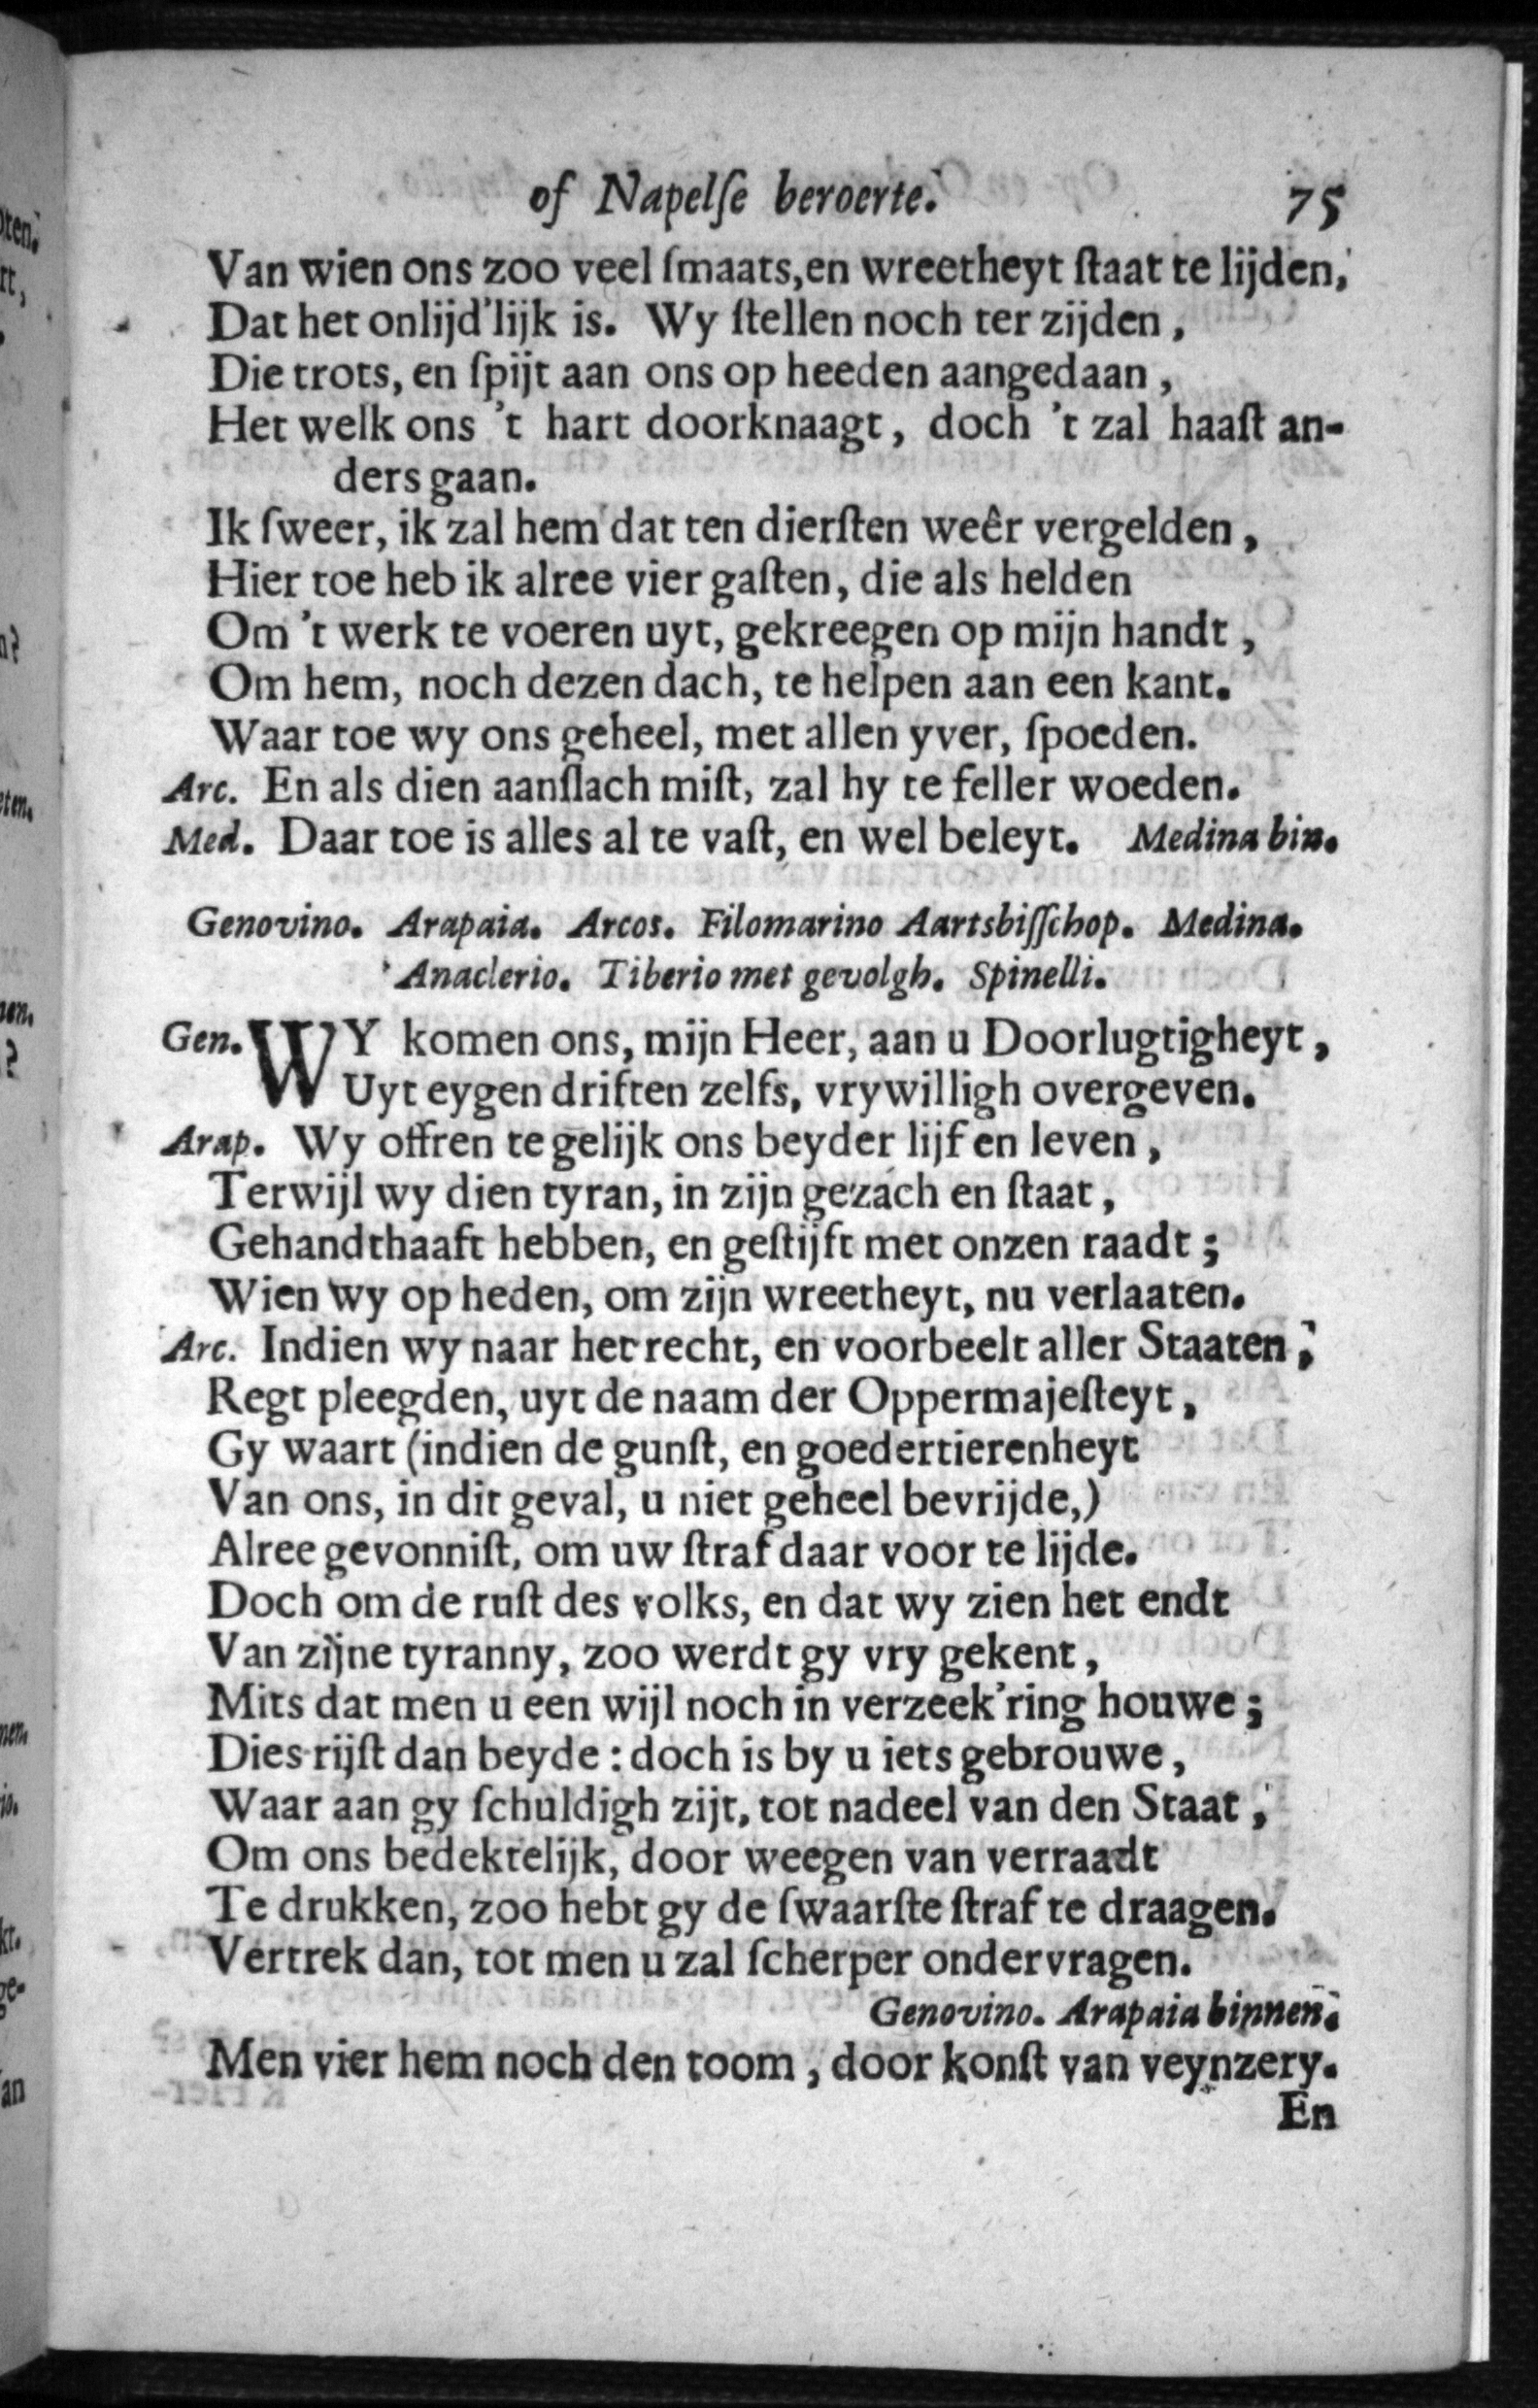 of Napelſe beroerte. 75
Van wien ons zoo veel ſmaats, en wreetheyt ſtaat te lijden,
Dat het onlijd'lijk is. Wy ſtellen noch ter zijden,
Die trots, en ſpijt aan ons op heeden aangedaan,
Het welk ons 't hart doorknaagt, doch 't zal haaſt an-
ders gaan.
Ik ſweer, ik zal hem dat ten dierſten weêr vergelden,
Hier toe heb ik alree vier gaſten, die als helden
Om 't werk te voeren uyt, gekreegen op mijn handt,
Om hem, noch dezen dach, te helpen aan een kant.
Waar toe wy ons geheel, met allen yver, ſpoeden.
Arc. En als dien aanſlach miſt, zal hy te feller woeden.
Med. Daar toe is alles al te vaſt, en wel beleyt. Medina bin.
Genovino. Arapaia. Arcos. Filomarino Aartsbiſſchop. Medina.
Anaclerio. Tiberio met gevolgh. Spinelli.
Gen. WY komen ons, mijn Heer, aan u Doorlugtigheyt,
Uyt eygen driften zelfs, vrywilligh overgeven.
Arap. Wy offren te gelijk ons beyder lijf en leven,
Terwijl wy dien tyran, in zijn gezach en ſtaat,
Gehandthaaft hebben, en geſtijft met onzen raadt;
Wien wy op heden, om zijn wreetheyt, nu verlaaten.
Arc. Indien wy naar het recht, en voorbeelt aller Staaten,
Regt pleegden, uyt de naam der Oppermajeſteyt,
Gy waart (indien de gunſt, en goedertierenheyt
Van ons, in dit geval, u niet geheel bevrijde,)
Alree gevonniſt, om uw ſtraf daar voor te lijde.
Doch om de ruſt des volks, en dat wy zien het endt
Van zijne tyranny, zoo werdt gy vry gekent,
Mits dat men u een wijl noch in verzeek'ring houwe;
Dies rijſt dan beyde: doch is by u iets gebrouwe,
Waar aan gy ſchuldigh zijt, tot nadeel van den Staat,
Om ons bedektelijk, door weegen van verraadt
Te drukken, zoo hebt gy de ſwaarſte ſtraf te draagen.
Vertrek dan, tot men u zal ſcherper ondervragen.
Genovino. Arapaia binnen.
Men vier hem noch den toom, door konſt van veynzery.
En